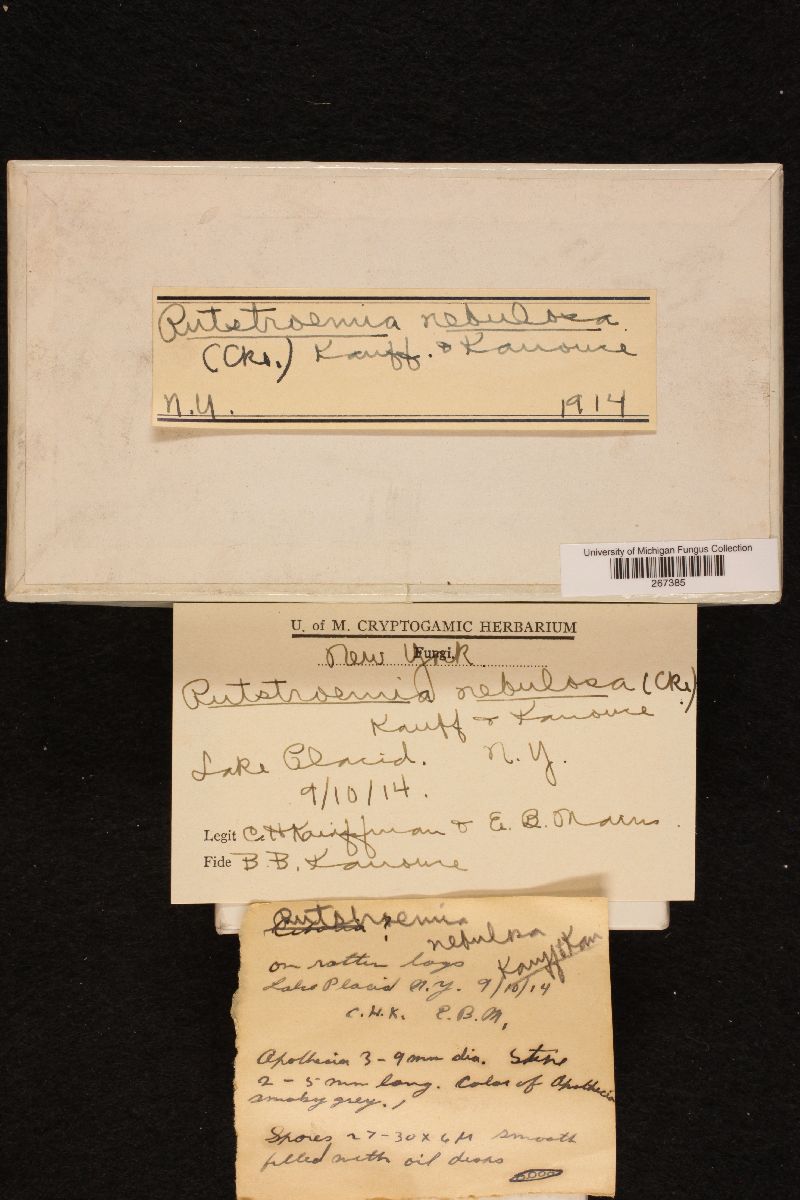 Rutstroemia nebulosa
(Cke.) Kauff. & Kanouse
N.Y. 1914
University of Michigan Fungus Collection
267385
U. of M. CRYPTOGAMIC HERBARIUM
Fungi,
New York
Rutstroemia nebulosa (Cke.)
Kauff & Kanouse
Lake Placid. N.Y.
9/10/14.
Legit C.H Kauffman & E. B. Mains.
Fide B.B. Kanouse
Rutstroemia
nebulosa
Kauff & Kan
on rotten logs
Lake Placid N.Y. 9/10/14
C.H.K. E.B.M.
Apothecia 3-9 mm dia. Stipe
2-5 mm long. Color of Apothecia
smoky grey.,
Spores 27-30 x 6 µ smooth
filled with oil drops